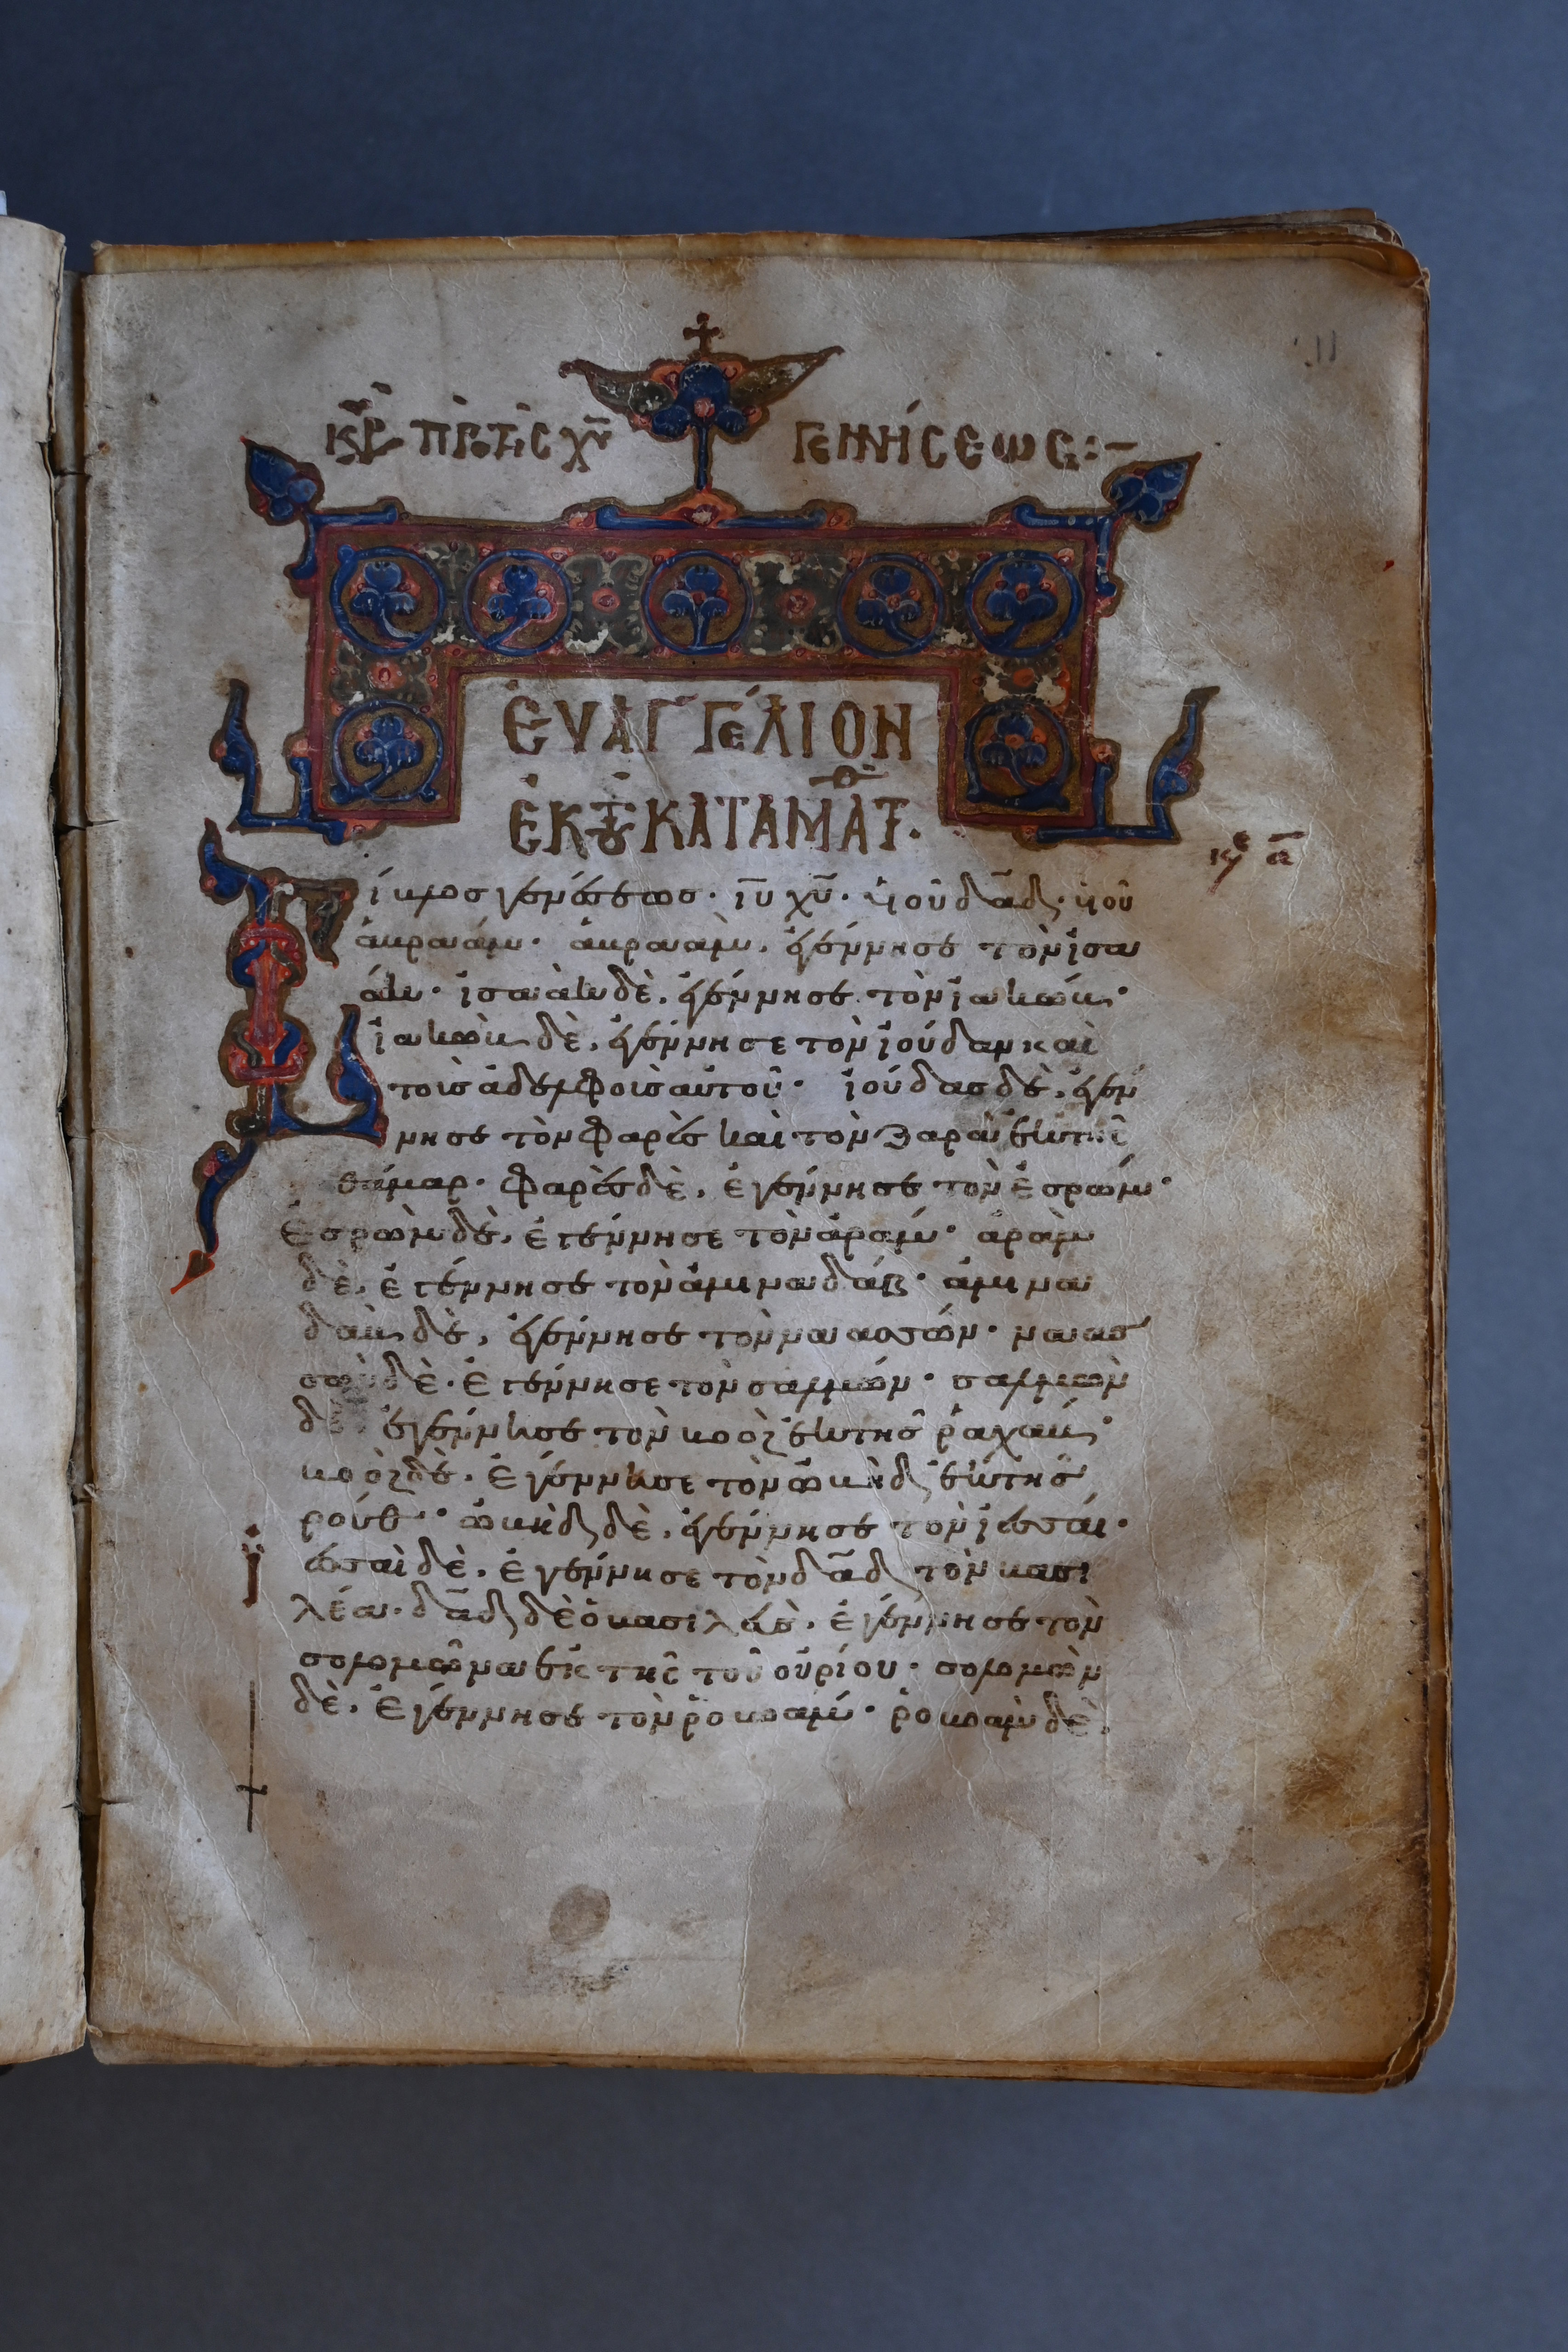 Κυρ πρὸ τῆς χῡ γεννήσεως:–
ΕΥΑΓΓΕΛΙΟΝ
ἐκ τοῦ ΚΑΤΑ ΜΑΤΘ.
κε α
Βίβλος γενέσεως· ῑῡ χῡ· ὑιοῦ δᾱδ· ὑιοῦ
ἀβραάμ· ἀβραὰμ, ἐγέννησε τὸν ἰσα
άκ· ἰσαὰκ δὲ, ἐγέννησε τὸν ἰακώβ·
ἰακὼβ δὲ, ἐγέννησε τὸν ἰούδαν καὶ
τοὶσ ἀδελφοὶσ αὐτοῦ· ἰούδασ δὲ, ἐγέν
νησε τὸν φαρὲσ καὶ τὸν ζαρὰ ἐκ τῆς
θάμαρ· φαρὲσ δὲ, ἐγέννησε τὸν ἐσρώμ·
ἐσρὼμ δὲ, ἐγέννησε τὸν ἀράμ· ἀρὰμ
δὲ, ἐγέννησε τὸν ἀμιναδάβ· ἀμινα
δὰβ δὲ, ἐγέννησε τὸν ναασσών· ναασ
σὼν δὲ· ἐγέννησε τὸν σαλμών· σαλμὼν
δὲ ἐγέννησε τὸν βοὸζ ἐκ τῆς ῥαχάβ·
βοὸζ δὲ, ἐγέννησε τὸν ὠβὴδ ἐκ τῆς
ρούθ· ὠβὴδ δὲ, ἐγέννησε τὸν ἰεσσαί·
ἰεσσαὶ δὲ, ἐγέννησε τὸν δᾱδ τὸν βασι
λέα· δᾱδ δὲ ὁ βασιλεὺς, ἐγέννησε τὸν
σολομῶνα ἐκ τῆς τοῦ οὐρίου· σολομὼν
δὲ, ἐγέννησε τὸν ῥοβοάμ· ῥοβοὰμ δὲ,